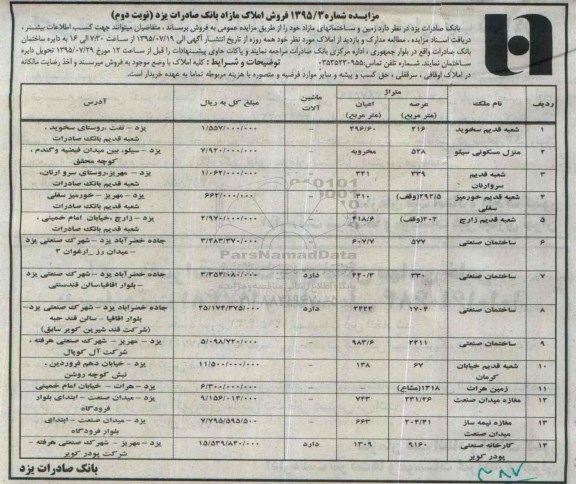 مزایده شماره ۱۳۹۵/۳ فروش املاک مازاد بانک صادرات یزد (نوبت دوم)
بانک صادرات یزد در نظر دارد زمین و ساختمانهای مازاد خود را از طریق مزایده عمومی به فروش برساند ، متقاضیان میتوانند جهت کسب اطلاعات بیشتر ،
دریافت اسناد مزایده ، مطالعه مدارک و بازدید از املاک مورد نظر خود همه روزه از تاریخ انتشار آگهی الی ۱۳۹۵/۰۷/۱۹ از ساعت ۷:۳۰ الی ۱۶ به دایره ساختمان
بانک صادرات واقع در بلوار جمهوری ، اداره مرکزی بانک صادرات مراجعه نمایند و پاکات حاوی پیشنهادات را قبل از ساعت ۱۲ مورخ ۱۳۹۵/۰۷/۲۹ تحویل دایره
ساختمان نمایند. شماره تلفن تماس: ۰۳۵۳۵۲۳۰۹۵۵ توضیحات و شرایط : کلیه املاک با وضع موجود به فروش میرسند و اخذ رضایت مالکانه
در املاک اوقافی ، سرقفلی ، حق کسب و پیشه و سایر موارد فرضیه و متصوره با هزینه مربوطه تماما به عهده خریدار است.
ردیف نام ملک متراژ عرصه (متر مربع) اعیان (متر مربع) ماشین آلات مبلغ کل به ریال آدرس
۱ شعبه قدیم سخوید ۲۱۶ ۲۹۶/۶۰ – ۱/۵۵۷/۰۰۰/۰۰۰ یزد – تفت ،روستای سخوید ، شعبه قدیم بانک صادرات
۲ منزل مسکونی سیلو ۵۲۸ مخروبه – ۷/۹۲۰/۰۰۰/۰۰۰ یزد – سیلو، بین میدان فیضیه وگندم ، کوچه محقق
۳ شعبه قدیم سروارتان ۳۳۹ ۲۲۱ – ۱/۰۶۲/۰۰۰/۰۰۰ یزد – مهریز،روستای سرو ارتان، شعبه قدیم بانک صادرات
۴ شعبه قدیم خورمیز سفلی ۲۹۲/۵(وقف) ۴۱۰ – ۶۶۲/۰۰۰/۰۰۰ یزد – مهریز – خورمیز سفلی شعبه قدیم بانک صادرات
۵ شعبه قدیم زارچ ۲۰۲(وقف) ۴۱۸/۶ – ۲/۹۷۰/۰۰۰/۰۰۰ یزد – زارچ ،خیابان امام خمینی ، شعبه قدیم بانک صادرات
۶ ساختمان صنعتی ۵۷۷ ۶۰۷/۷ – ۳/۲۸۳/۳۷۰/۰۰۰ جاده خضرآباد یزد – شهرک صنعتی یزد – میدان رز _ارغوان ۳
۷ ساختمان صنعتی ۳۳۰ ۲۲۰/۳ دارد ۳/۳۵۳/۰۸۰/۰۰۰ جاده خضرآباد یزد – شهرک صنعتی یزد – بلوار اقاقیا-سالن قندسنتی
۸ ساختمان صنعتی ۱۷۰۴ ۲۲۲۲ دارد ۲۵/۱۷۴/۳۷۵/۰۰۰ جاده خضراباد یزد – شهرک صنعتی یزد– بلوار اقاقیا – سالن قند حبه (شرکت قند شیرین کویر سابق)
۹ ساختمان صنعتی ۲۴۱۱ ۹۸۳/۶ – ۵/۰۹۸/۷۲۰/۰۰۰ یزد – مهریز – شهرک صنعتی هرفته ، شرکت آل کوپال
۱۰ شعبه قدیم خیابان کرمان ۶۷ ۱۳۸ – ۱۱/۵۰۰/۰۰۰/۰۰۰ یزد – خیابان دهم فروردین ، نبش کوچه روشن
۱۱ زمین هرات ۱۳۱۸(مشاع) – – ۶/۳۰۰/۰۰۰/۰۰۰ یزد – هرات – خیابان امام خمینی
۱۲ مغازه میدان صنعت ۲۳۱/۲۶ ۷۴۳ – ۹/۱۵۶/۰۱۴/۰۰۰ یزد – میدان صنعت – ابتدای بلوار فرودگاه
۱۳ مغازه نیمه ساز میدان صنعت ۲۰۴/۴۱ ۶۶۳ – ۷/۷۹۵/۵۹۵/۵۰۰ یزد – میدان صنعت – ابتدای بلوار فرودگاه
۱۴ کارخانه صنعتی پودر کویر ۹۱۶۰ ۱۳۰۹ دارد ۱۵/۵۳۹/۸۴۰/۰۰۰ یزد – مهریز – شهرک صنعتی هرفته – شرکت پودر کویر
بانک صادرات یزد
ParsNamadData